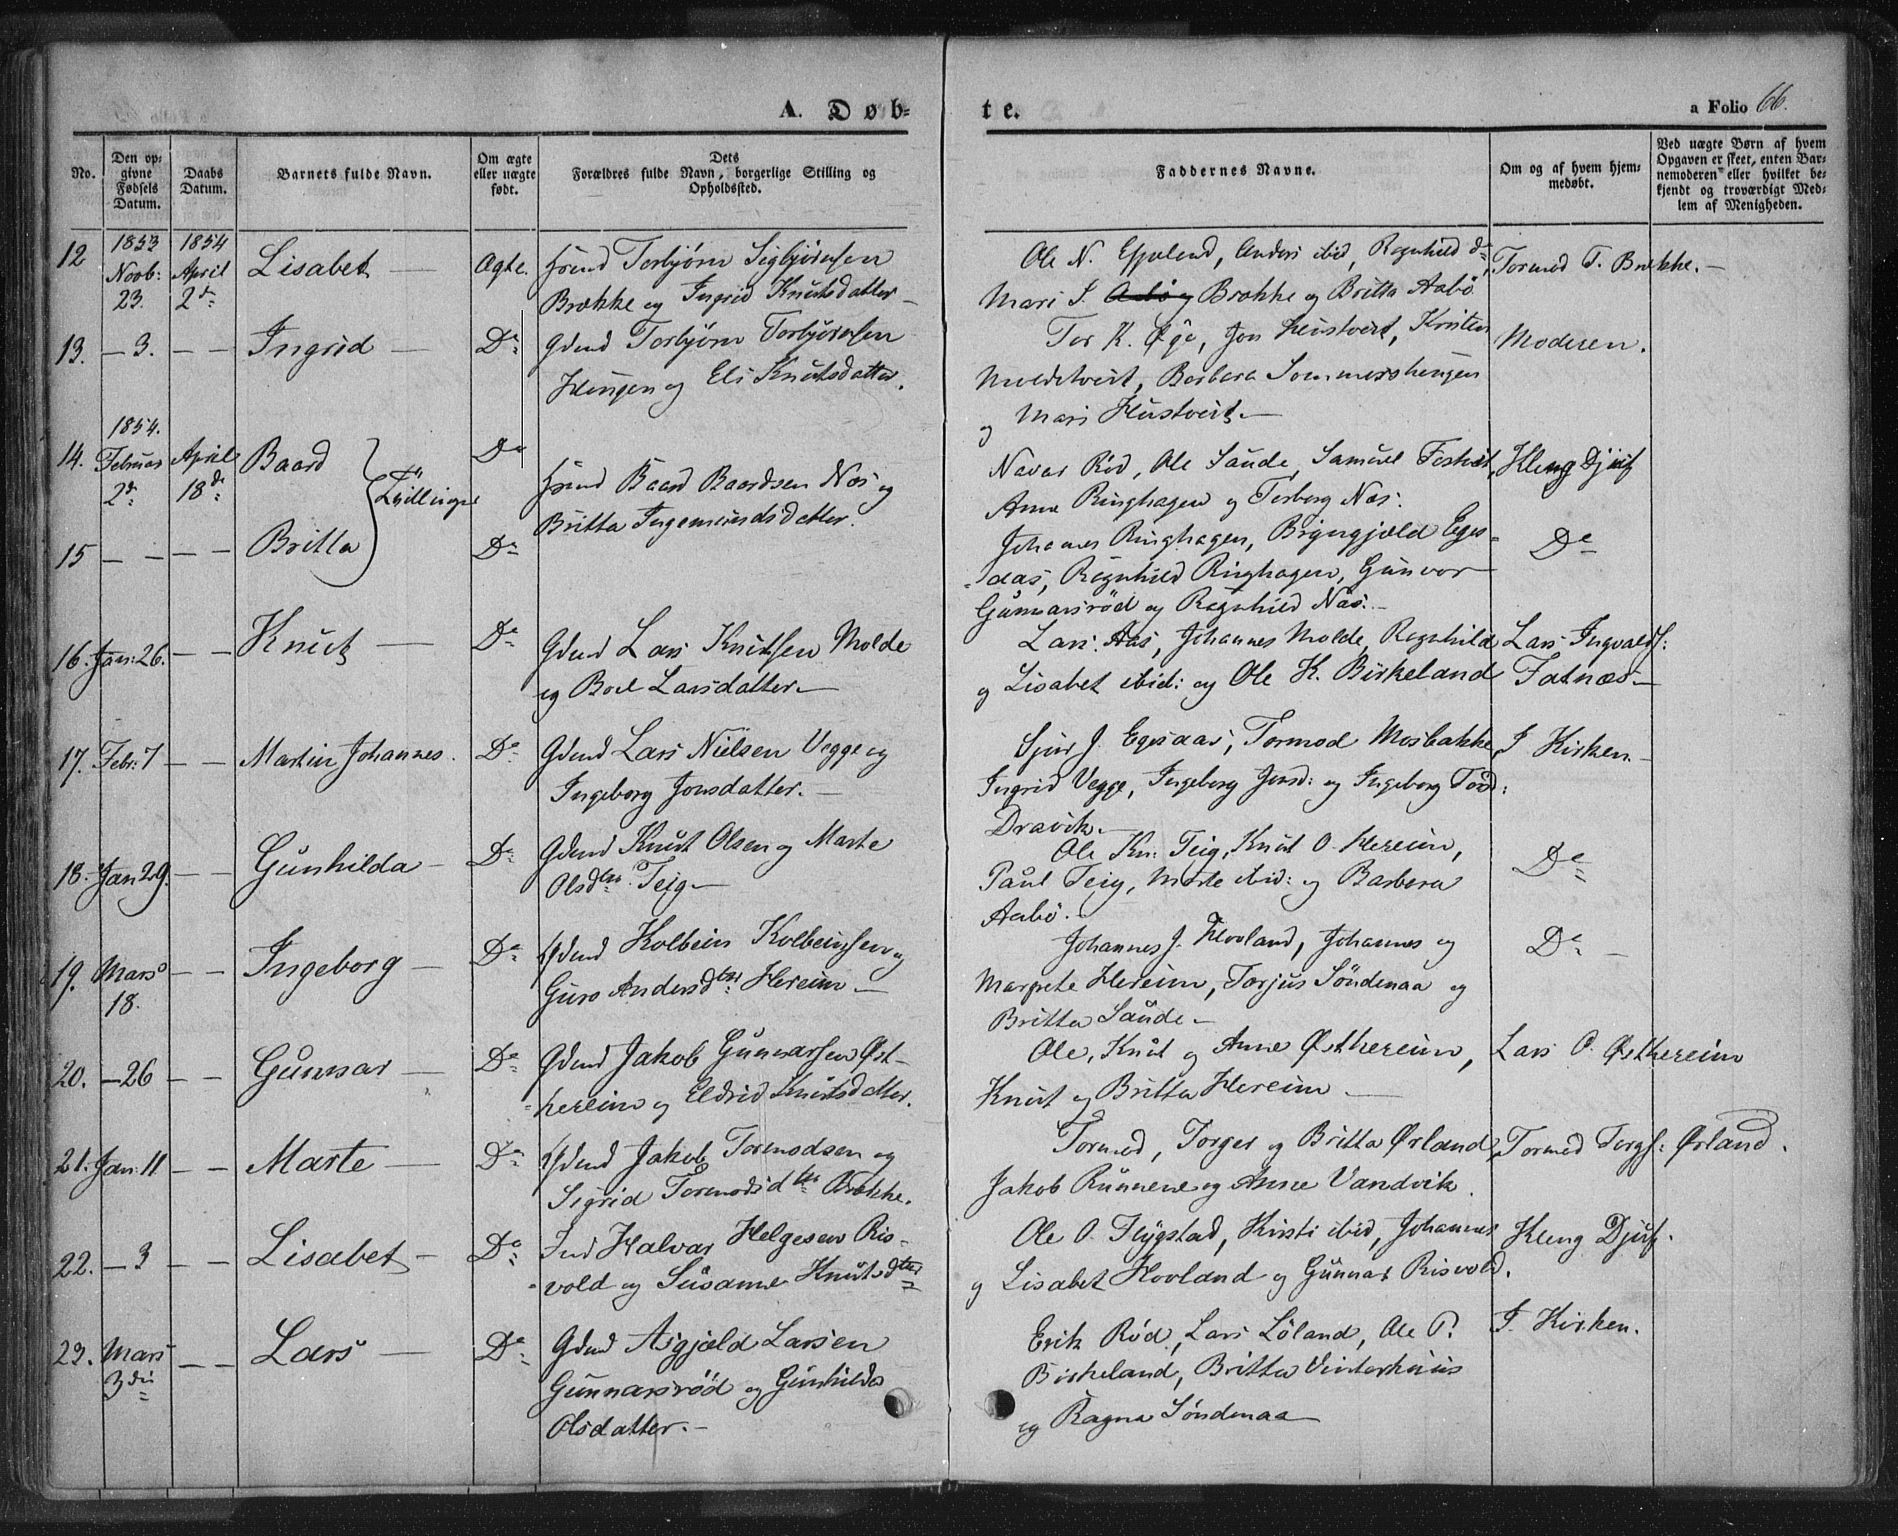 A. Døb-
te.
a Folio 66.
No.
Den op-
givne
Fødsels
Datum.
Daabs
Datum.
Barnets fulde Navn.
Om ægte
eller uægte
født.
Dets
Forældres fulde Navn, borgerlige Stilling og
Opholdssted.
Faddernes Navne.
Om og af hvem hjem-
medøbt.
Ved uægte Børn af hvem
Opgaven er skeet, enten Bar-
nemoderen eller hvilket be-
kjendt og troværdigt Med-
lem af Menigheden.
12
1853
Novb:
23.
1854
April
2d
Lisabet
Ægte.
Torbjørn Sigbjørnsen
Brække og Ingrid Knutsdatter
Ole N. Espeland, Anders ibid, Ragnhild do
Mari S. Brække og Britta Aabø
Tormod T. Brække.
13.
3.
Ingrid
Do
Gdmd Torbjørn Torbjørnsen
Haugen og Eli Knutsdatter.
Tor K. Øye, Jon Hustveit, Kristen
Mosetveit, Barbara Sommershaugen
og Mari Hustveit
Moderen.
14.
1854.
Februar
2d
April
18de
Baard
Tvillinger
Do
Baard Baardsen Næs og
Britta Ingemundsdatter.
Navar Rød, Ole Saude, Samuel Fostveit,
Anne Ringhagen og Torborg Næs.
Kleng Djuf
15
Britta
Do
Johannes Ringhagen, Brigngjæld Eges-
aas, Ragnhild Ringhagen, Gunvor
Gunnarsrød og Ragnhild Næs.
Do
16.
Jan: 26.
Knut
Do
Gdmd Lars Knutsen Molde
og Boel Larsdatter
Lars Aas, Johannes Molde, Ragnhild
og Lisabet ibid: og Ole K. Birkeland
Lars Ingvalds:
Fatnæs
17.
Febr: 7
Martin Johannes.
Do
Gdmd Lars Nielsen Vegge og
Ingeborg Jonsdatter.
Sjur J. Egesaas, Tormod Mosbække
Ingrid Vegge, Ingeborg Jonsd: og Ingeborg Tosd:
Dravik
I Kirken.
18.
Jan 29.
Gunhilda
Do
Gdmd Knut Olsen og Marte
Olsdtr Teig
Ole Kn: Teig, Knut O. Hereim,
Paul Teig, Marte ibid: og Barbara
Aabø.
Do
19.
Mars
18.
Ingeborg
Do
Gdmd Kolbein Kolbeinsen og
Guro Andersdtr Hereim
Johannes J. Hovland, Johannes og
Margrete Hereim, Torjus Søndenaa og
Britta Saude
Do
20.
26
Gunnar
Do
Gdmd Jakob Gunnarsen Øst-
hereim og Eldrid Knutsdatter.
Ole, Knut og Anne Østhereim,
Knut og Britta Hereim
Lars O. Østhereim
21.
Jan: 11
Marte
Do
Gdmd Jakob Tormodsen og
Sigrid Tormodsdtr Brække.
Tormod, Torger og Britta Ørland,
Jakob Runnene og Anne Vandvik
Tormod Torgs: Ørland.
22.
3
Lisabet
Do
Halvar Helgesen Ris-
vold og Susanne Knutsdtr
Ole O. Fløgstad, Kristi ibid, Johannes
og Lisabet Hovland og Gunnar Risvold.
Kleng Djuf.
23.
Mars
3die
Lars
Do
Gdmd Asgjæld Larsen
Gunnarsrød og Gunhilda
Olsdatter.
Erik Rød, Lars Løland, Ole P.
Birkeland, Britta Vinterhuus
og Ragna Søndenaa
I Kirken.